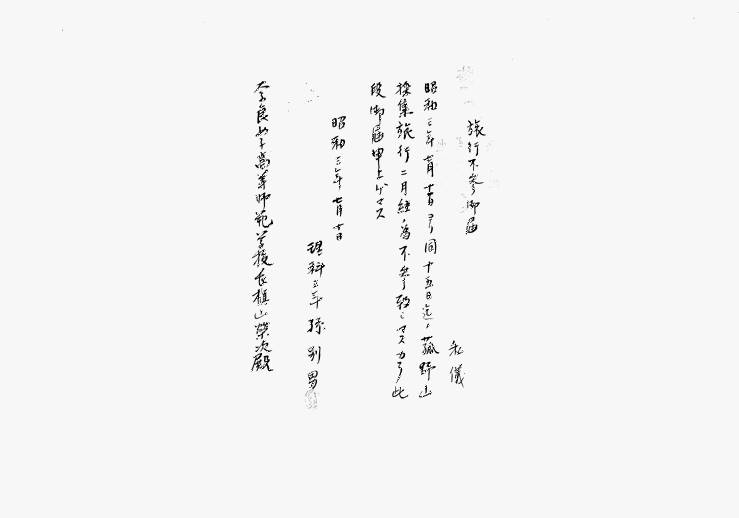 旅行不参御届
私儀
昭和三年七月十一日ヨリ同十五日迄ノ菰野山
採集旅行ニ月経ノ為不参致シマスカラ此
段御届申上ゲマス
昭和三年七月十日
理科三年 孫 別 男
奈良女子高等師範学校長槙山榮次殿